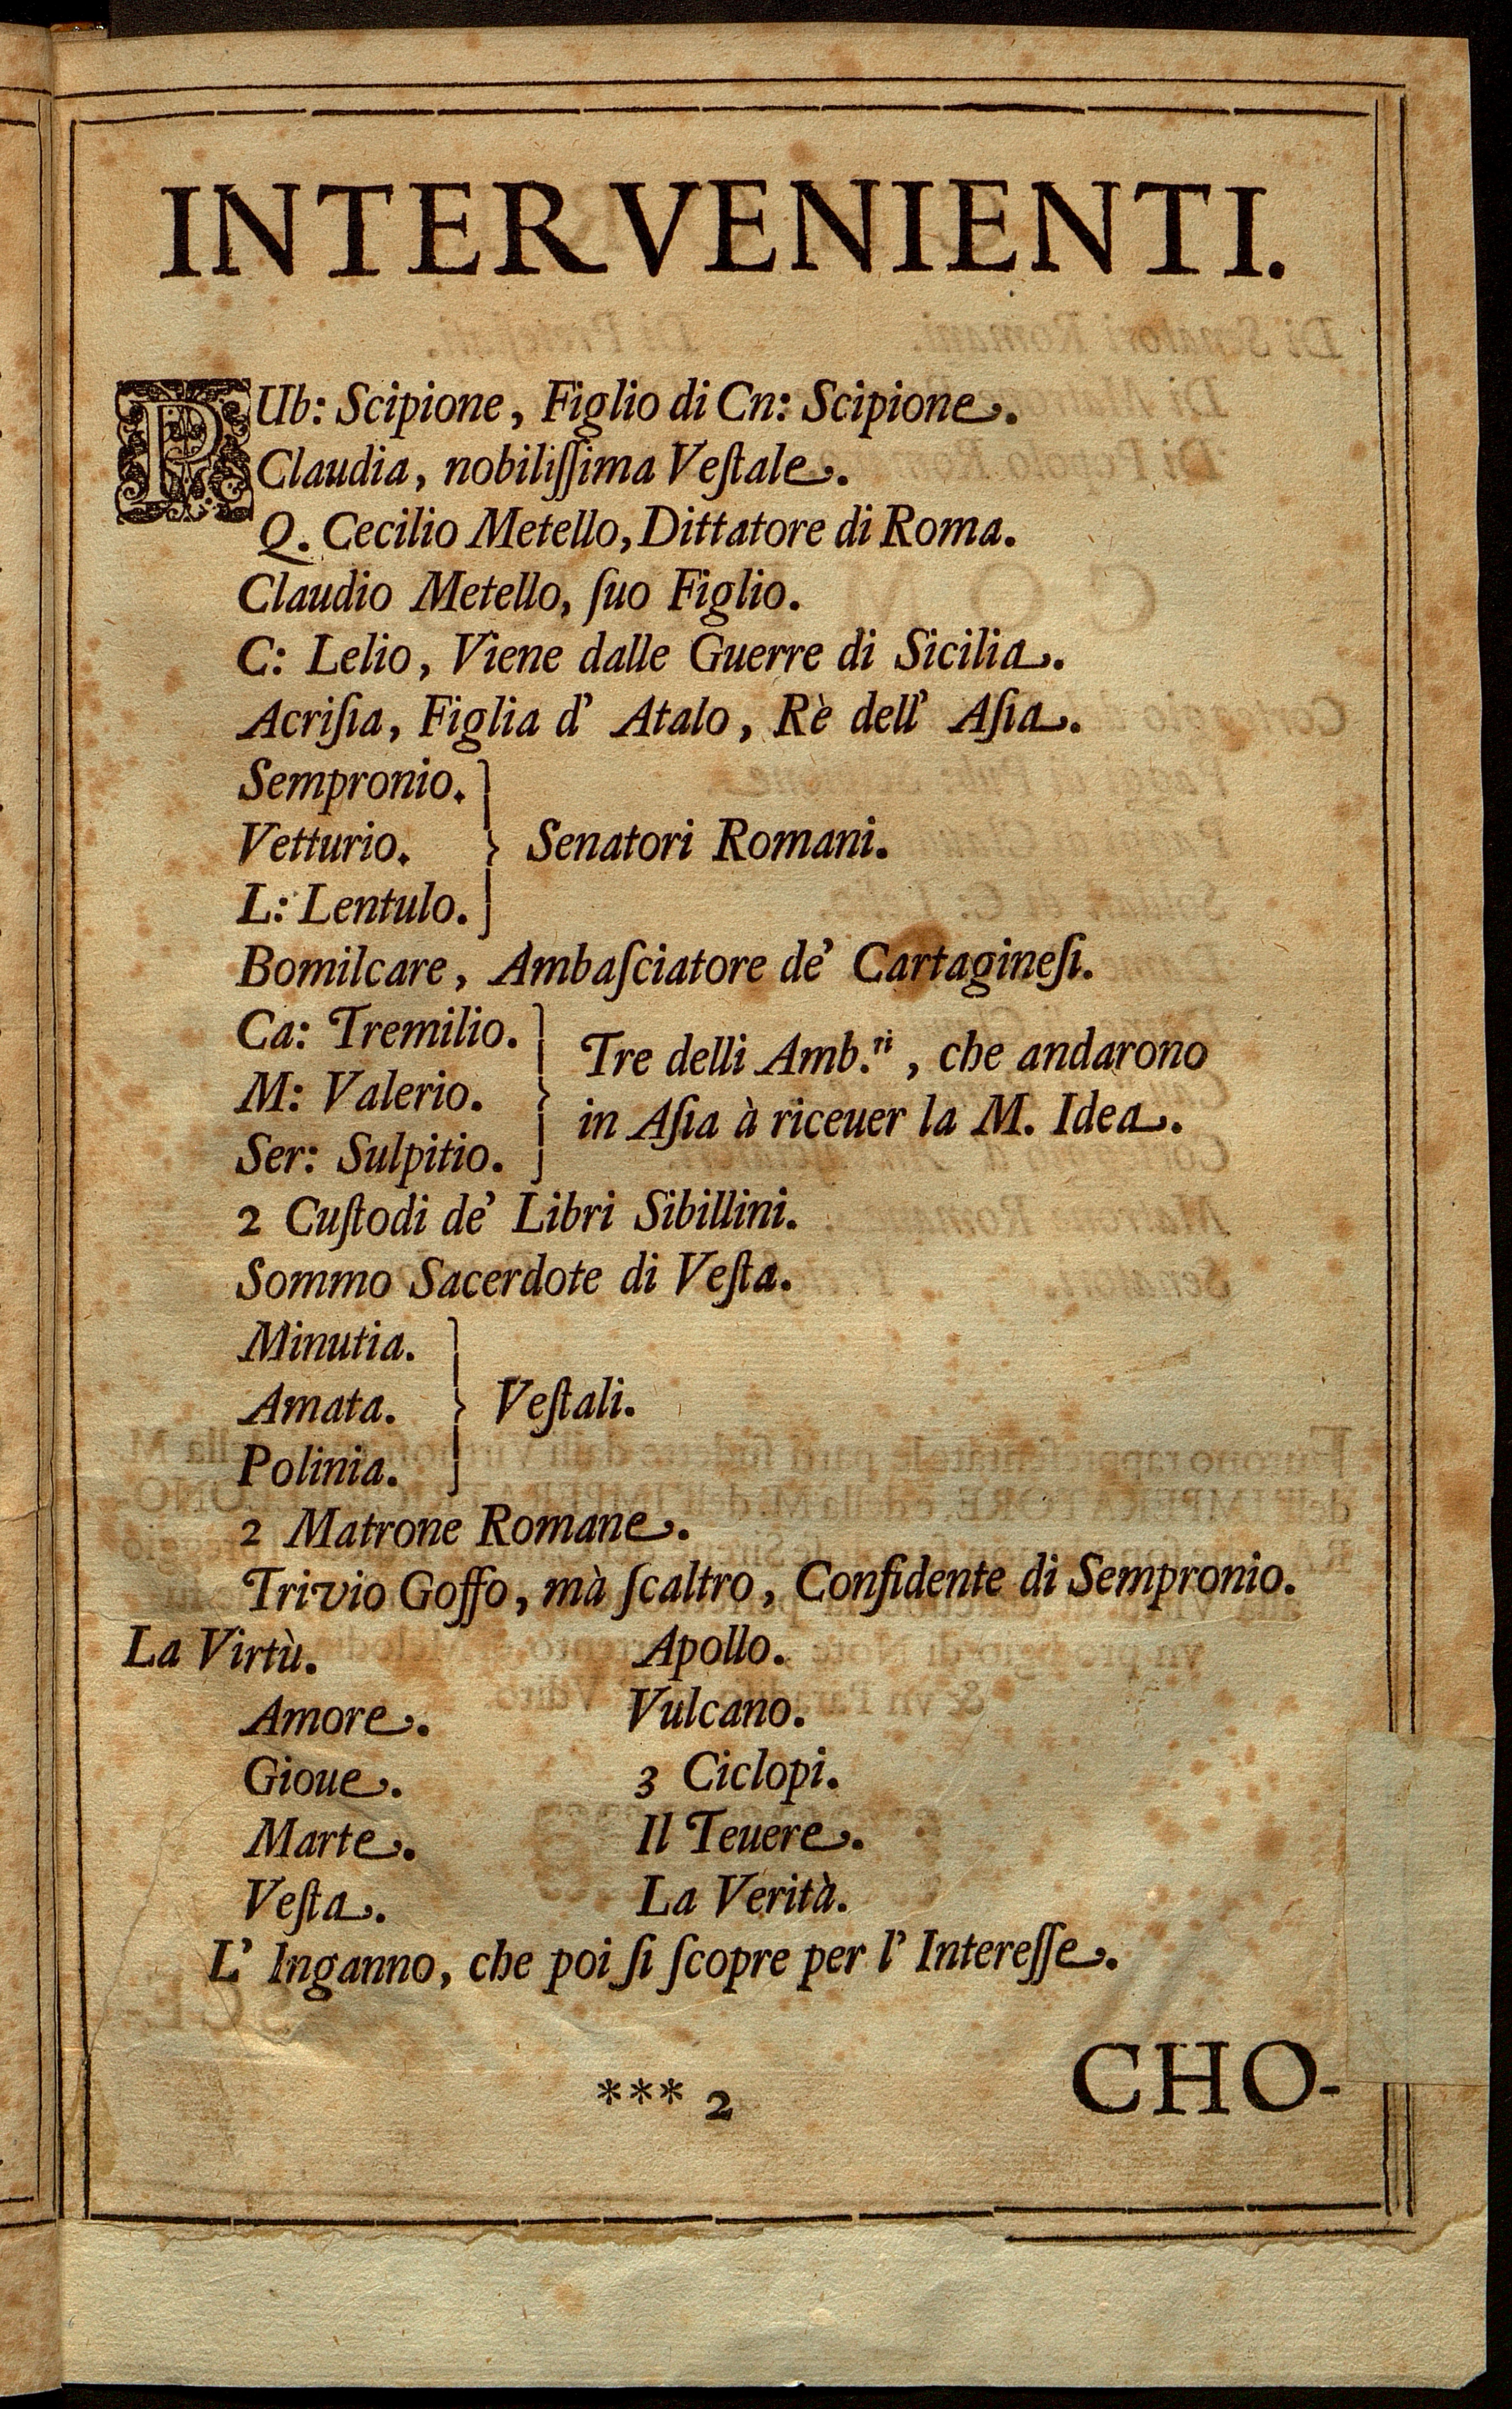 INTERVENIENTI.
PUb: Scipione, Figlio di Cn: Scipione.
Claudia, nobiliſſima Veſtale.
Q. Cecilio Metello, Dittatore di Roma.
Claudio Metello, ſuo Figlio.
C: Lelio, Viene dalle Guerre di Sicilia.
Acriſia, Figlia d' Atalo, Rè dell' Aſia.
Sempronio.
Vetturio. } Senatori Romani.
L: Lentulo.
Bomilcare, Ambaſciatore de' Cartagineſi.
Ca: Tremilio.
Tre delli Amb.ri, che andarono
M: Valerio.
in Aſia à riceuer la M. Idea.
Ser: Sulpitio.
2 Cuſtodi de' Libri Sibillini.
Sommo Sacerdote di Veſta.
Minutia.
Amata. } Veſtali.
Polinia.
2 Matrone Romane.
Trivio Goffo, mà ſcaltro, Confidente di Sempronio.
La Virtù. Apollo.
Amore. Vulcano.
Gioue. 3 Ciclopi.
Marte. Il Teuere.
Veſta. La Verità.
L' Inganno, che poi ſi ſcopre per l' Intereſſe.
*** 2 CHO-